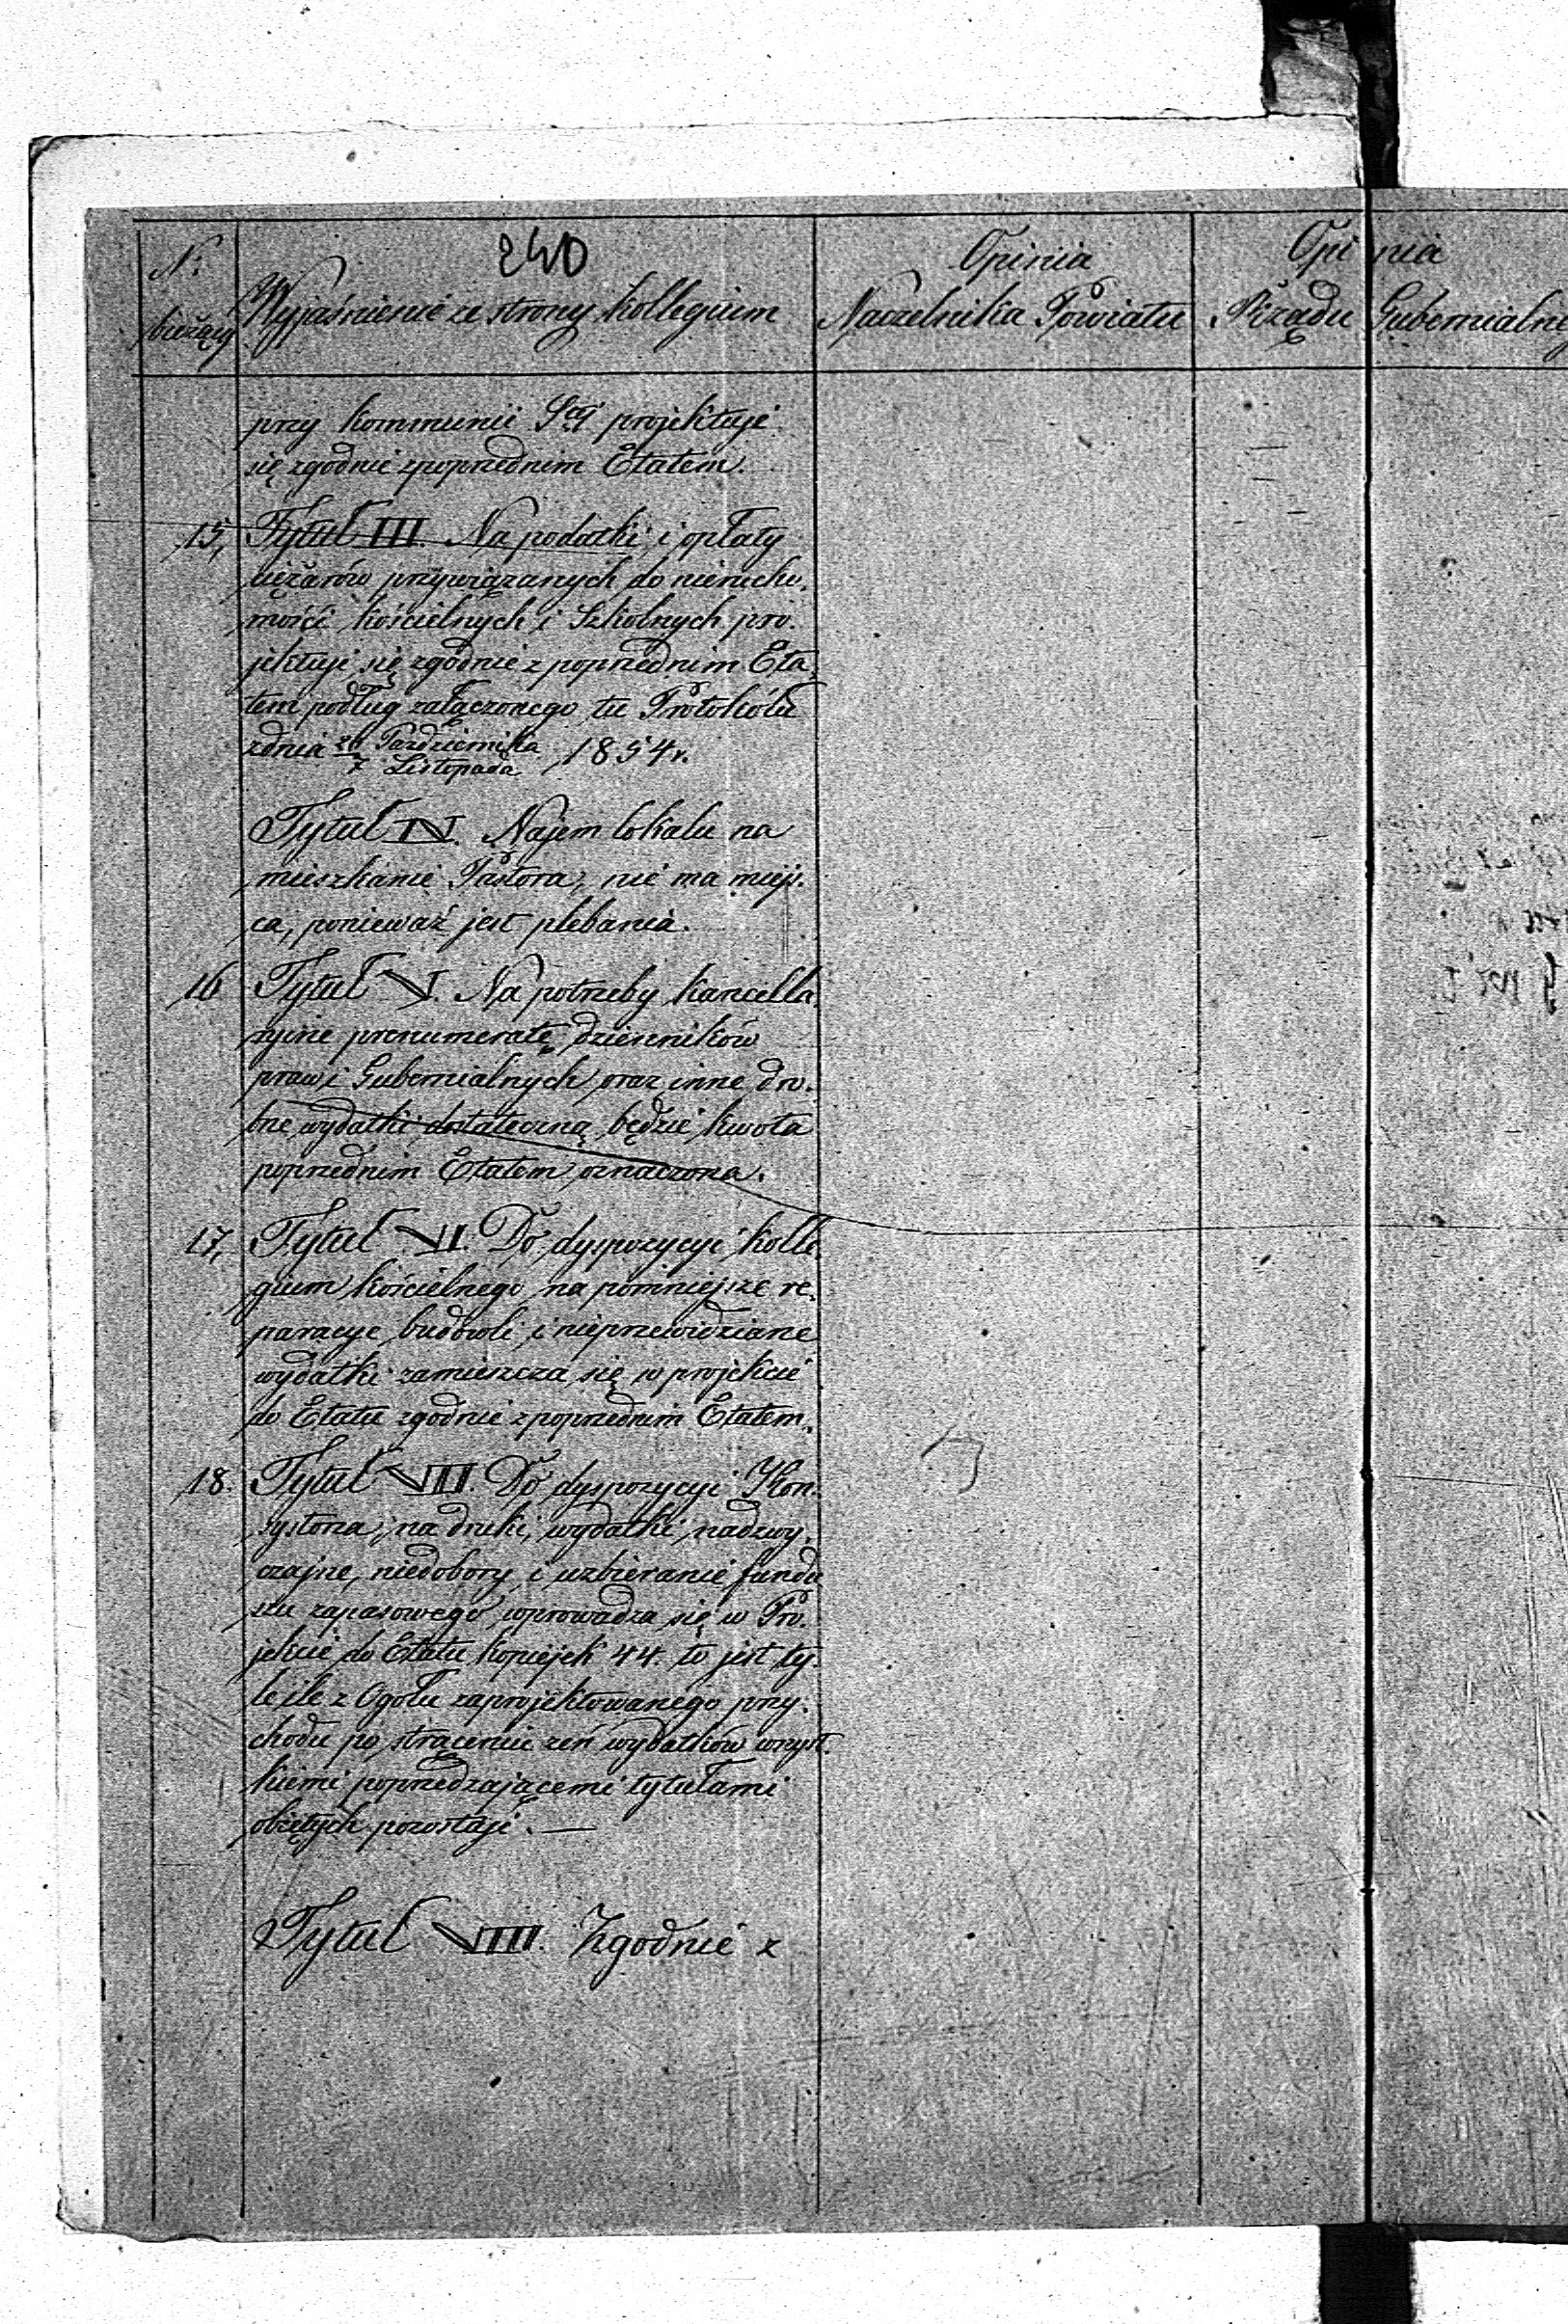 240
Nr
bieżący
Wyjaśnienie ze strony kollegium
Opinia
Naczelnika Powiatu
Opinia
Rządu Gubernialne
przy kommunii Stéj projektuje
się zgodnie z poprzednim Etatem.
15, Tytuł III. Na podatki i opłaty
ciężarów przywiązanych do nierucho-
mości kościelnych i Szkolnych pro-
jektuje się zgodnie z poprzednim Eta-
tem podług załączonego tu Protokółu
zdnia 26 Pazdziernika / 7 Listopada 1854 r.
Tytuł IV. Najem lokalu na
mieszkanie Pastora, nie ma miejs-
ca, ponieważ jest plebania.
16 Tytuł V. Na potrzeby kancella-
ryine prenumeratę dzienników
praw i Gubernialnych oraz inne dro-
bne wydatki dostateczną będzie kwota
poprzednim Etatem oznaczona.
17, Tytuł VI. Do dyspozycyi kolle-
gium kościelnego na pomniejsze re-
paracye budowli i nieprzewidziane
wydatki zamieszcza się w projekcie
do Etatu zgodnie z poprzednim Etatem.
18. Tytuł VII. Do dyspozycyi Kon-
systorza, na druki, wydatki nadzwy-
czajne, niedobory i uzbieranie fundu
szu zapasowego wprowadza się w Pro-
jekcie do Etatu kopiejek 44. to jest ty-
le ile z Ogółu zaprojektowanego przy-
chodu po strąceniu zeń wydatków wszyst-
kiemi poprzedzającemi tytułami
objętych pozostaje. —
Tytuł VIII. Zgodnie z